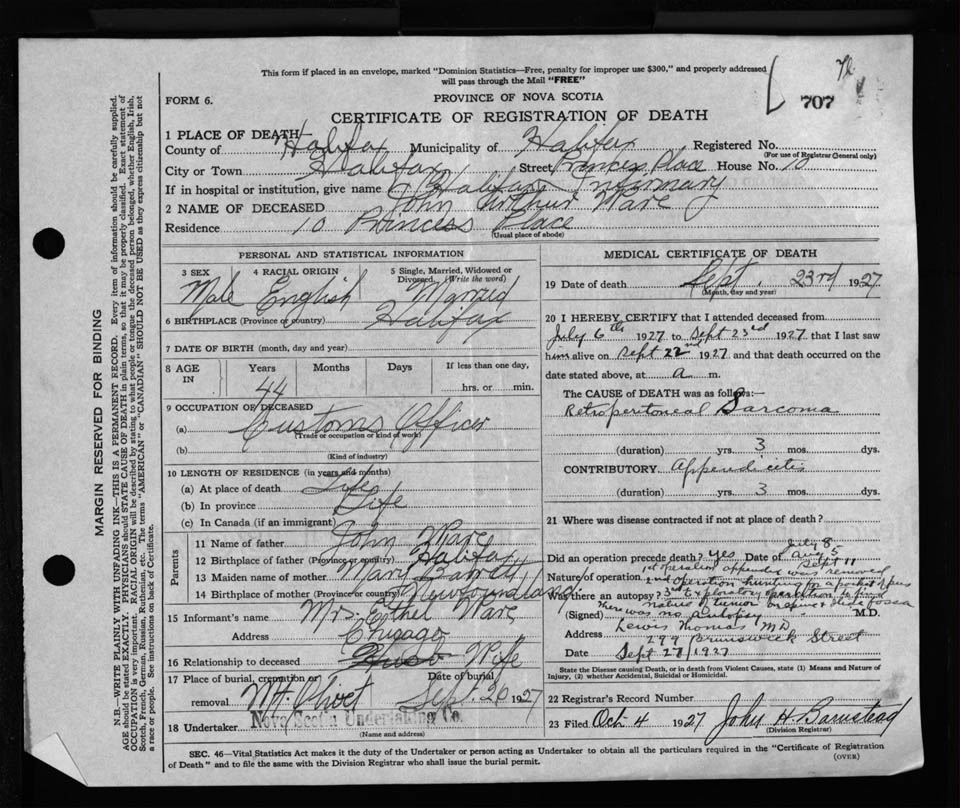 This form if placed in an envelope, marked "Dominion Statistics—Free, penalty for improper use $300," and properly addressed
will pass through the Mail "FREE"
707
FORM 6.
PROVINCE OF NOVA SCOTIA
CERTIFICATE OF REGISTRATION OF DEATH
1 PLACE OF DEATH
County of Halifax Municipality of Halifax Registered No.
(For use of Registrar General only)
City or Town Halifax Street Princess Place House No. 10
If in hospital or institution, give name Halifax Infirmary
2 NAME OF DECEASED John Arthur Ware
Residence 10 Princess Place
(Usual place of abode)
PERSONAL AND STATISTICAL INFORMATION
3 SEX 4 RACIAL ORIGIN 5 Single, Married, Widowed or
Divorced. (Write the word)
Male English Married
6 BIRTHPLACE (Province or country) Halifax
7 DATE OF BIRTH (month, day and year)
8 AGE IN Years Months Days If less than one day,
44 hrs. or min.
9 OCCUPATION OF DECEASED
(a) Customs Officer
(Trade or occupation or kind of work)
(b)
(Kind of industry)
10 LENGTH OF RESIDENCE (in years and months)
(a) At place of death Life
(b) In province Life
(c) In Canada (if an immigrant)
Parents
11 Name of father John Ware
12 Birthplace of father (Province or country) Halifax
13 Maiden name of mother Mary Barrett
14 Birthplace of mother (Province or country) Newfoundland
15 Informant's name Mrs. Ethel Ware
Address Chicago
16 Relationship to deceased Wife
17 Place of burial, cremation or removal Mt. Olivet Date of burial Sept 26 1927
18 Undertaker Nova Scotia Undertaking Co.
(Name and address)
MEDICAL CERTIFICATE OF DEATH
19 Date of death Sept. 23rd 1927
(Month, day and year)
20 I HEREBY CERTIFY that I attended deceased from
July 6th 1927 to Sept 23rd 1927 that I last saw
him alive on Sept 22nd 1927 and that death occurred on
date stated above, at A m.
The CAUSE of DEATH was as follows:—
Retroperitoneal Sarcoma
(duration) yrs. 3 mos. dys.
CONTRIBUTORY Appendicitis
(duration) yrs. 3 mos. dys.
21 Where was disease contracted if not at place of death?
July 8
Did an operation precede death? Yes Date of Aug 5
Sept 11
1st operation appendix was removed
Nature of operation 2nd operation hunting for a pocket of pus
Was there an autopsy? 3rd exploratory operation to find
nature of tumor in spine & iliac fossa
There was no autopsy
(Signed) Lewis Thomas MD M.D.
Address 299 Brunswick Street
Date Sept 27/1927
State the Disease causing Death, or in death from Violent Causes, state (1) Means and Nature of
Injury, (2) whether Accidental, Suicidal or Homicidal.
22 Registrar's Record Number
23 Filed Oct 4 1927 John H Barnstead
(Division Registrar)
SEC. 46—Vital Statistics Act makes it the duty of the Undertaker or person acting as Undertaker to obtain all the particulars required in the "Certificate of Registration
of Death" and to file the same with the Division Registrar who shall issue the burial permit.
(OVER)
MARGIN RESERVED FOR BINDING
N.B.—WRITE PLAINLY WITH UNFADING INK—THIS IS A PERMANENT RECORD. Every item of information should be carefully supplied.
AGE should be stated EXACTLY. PHYSICIANS should STATE CAUSE OF DEATH in plain terms, so that it may be properly classified. Exact statement of
OCCUPATION is very important. RACIAL ORIGIN will be described by stating to what people or tongue the deceased person belonged, whether English, Irish,
Scotch, French, German, Russian, Ruthenian, etc. The terms "AMERICAN" or "CANADIAN" SHOULD NOT BE USED as they express citizenship but not
a race or people. See instructions on back of Certificate.